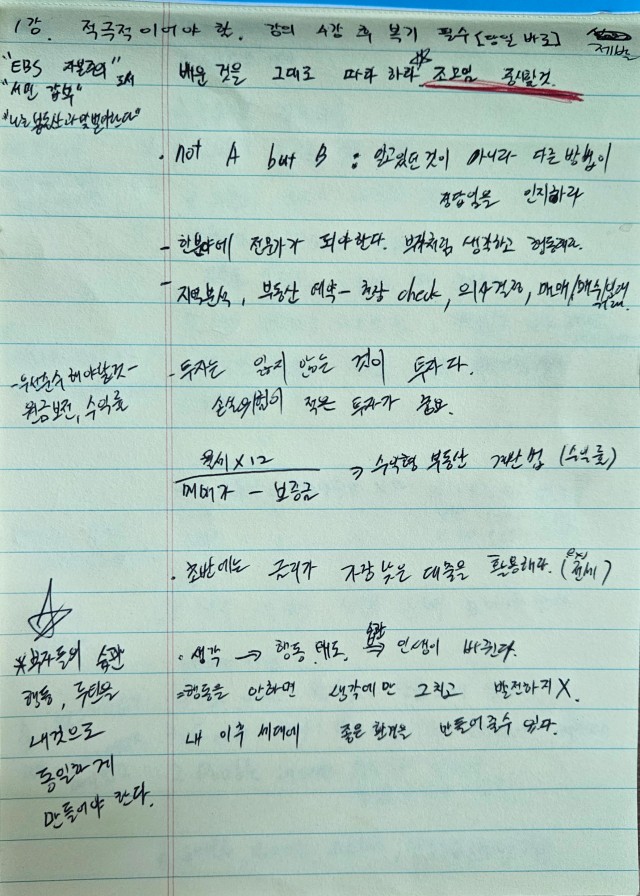 1강. 적극적이어야 함. 강의 4시간 후 복기 필수 [당일 바로] 제발
"EBS 자본주의" 도서
"서민 갑부"
"나는 부동산과 맞벌이한다"
배운 것을 그대로 따라 하라 조모임 중시할것.
· not A but B : 알고있던 것이 아니라 다른 방법이
정답임을 인지하라
- 한분야에 전문가가 되야한다. 부자처럼 생각하고 행동해라.
- 지역분석, 부동산 예약 - 현장 check, 의사결정, 매매/매수/임대
- 우선순위 해야할것 -
원금보전, 수익률
- 투자는 잃지 않는 것이 투자다.
손실위험이 적은 투자가 중요.
월세 X 12
매매가 - 보증금
→ 수익형 부동산 계산법 (수익률)
· 초반에는 금리가 가장 낮은 대출을 활용해라. (ex) 전세)
* 부자들의 습관
행동, 루틴을
내것으로
동일하게
만들어야 한다.
· 생각 → 행동, 태도, 습관 → 인생이 바뀐다.
=행동을 안하면 생각에만 그치고 발전하지 X.
내 이후 세대에 좋은 환경을 만들어줄수 있다.